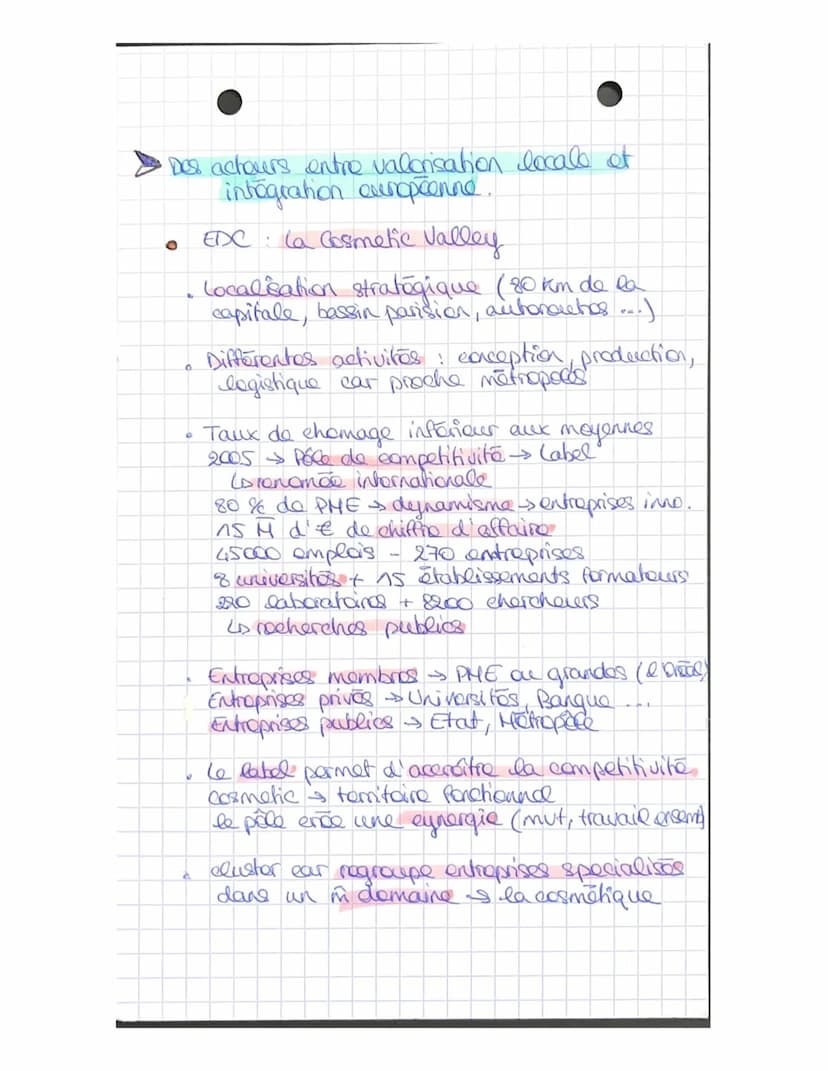 ➤ Des acteurs entre valorisation locale et
intégration européenne.
• EDC : La Cosmetic Valley
• Localisation stratégique (80 km de la
capitale, bassin parisien, autoroutes ...)
• Différentes activités : conception, production,
logistique car proche métropoles
• Taux de chomage inférieur aux moyennes
2005 → Pôle de compétitivité → Label
↳ renomée internationale
80 % de PME → dynamisme → entreprises inno.
15 M d'€ de chiffre d'affaire
45000 emplois - 270 entreprises
8 universités + 15 établissements formateurs
220 laboratoires + 8200 chercheurs
↳ recherches publics
• Entreprises membres → PME ou grandes (l'Oréal)
Entreprises privés → Universités, Banque ...
Entreprises publics → Etat, Métropole
• Le label permet d'accroître la compétitivité
cosmetic → territoire fonctionnel
le pôle crée une synergie (mut, travail ensem)
• cluster car regroupe entreprises specialisés
dans un m̂ domaine → la cosmétique